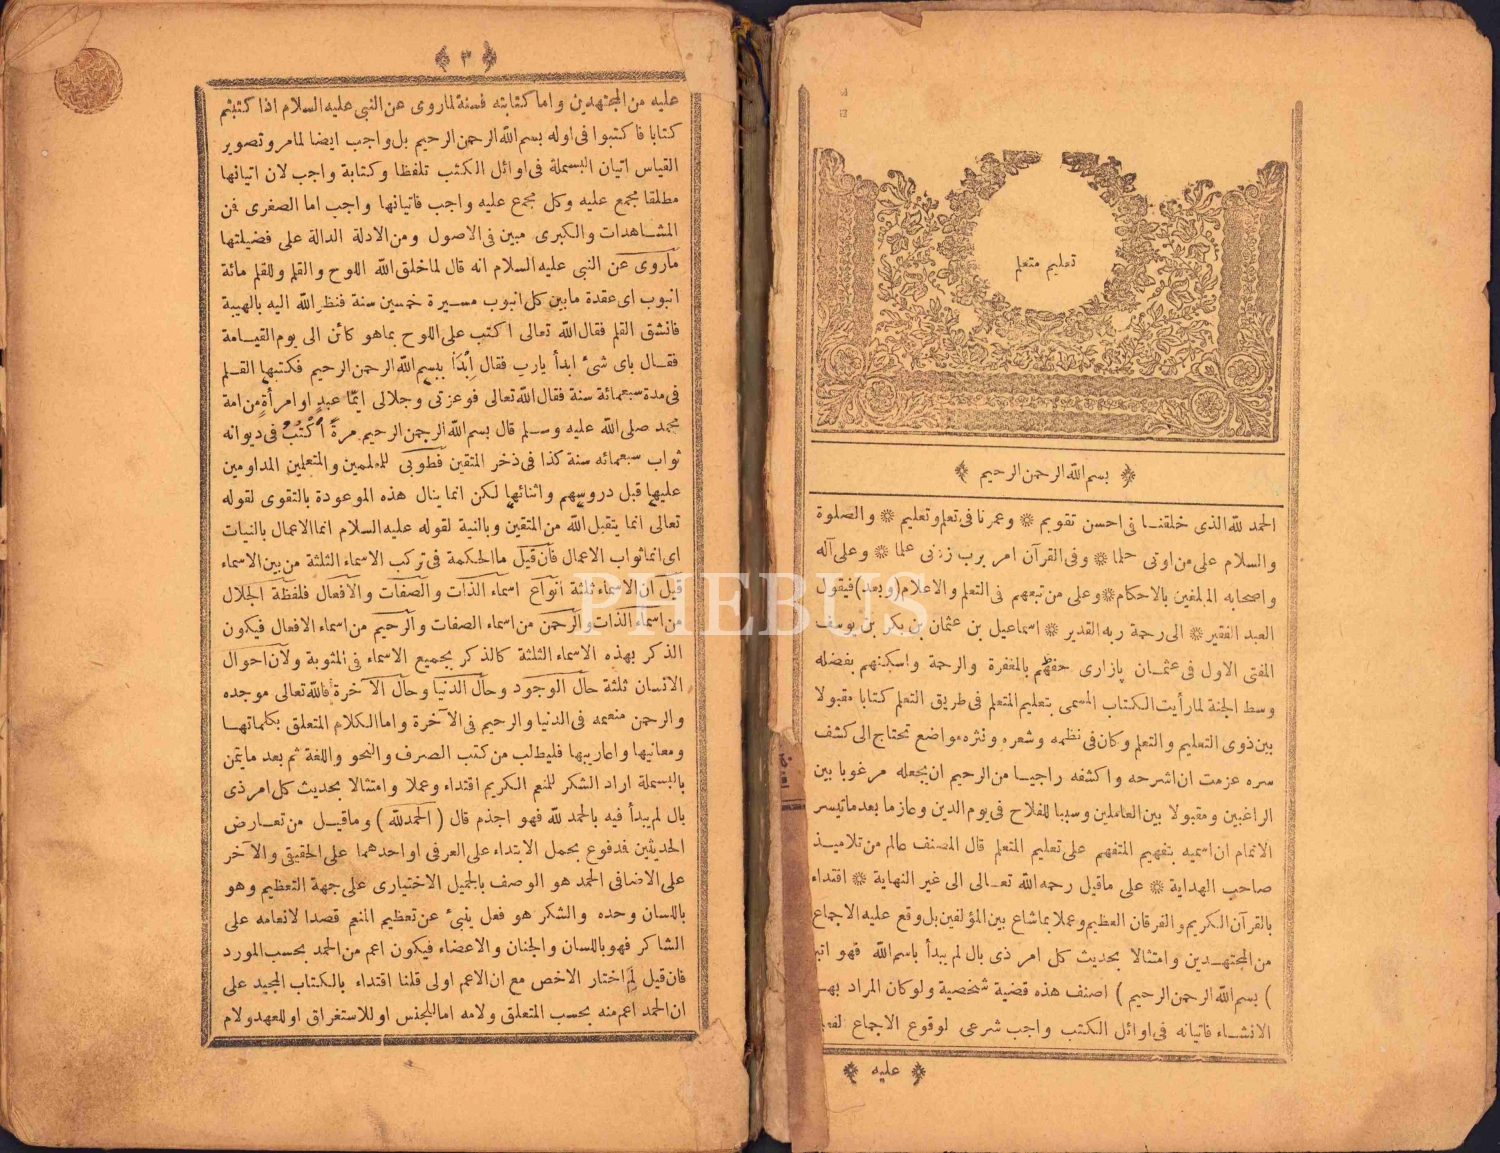 تعليم متعلم
بسم الله الرحمن الرحيم
الحمد لله الذى خلقنا فى احسن تقويم * وعمرنا فى تعلم وتعليم * والصلوة
والسلام على من اوتى حلما * وفى القرآن امر برب زدنى علما * وعلى آله
واصحابه المبلغين بالاحكام * وعلى من تبعهم فى التعلم والاعلام (وبعد) فيقول
العبد الفقير * الى رحمة ربه القدير * اسماعيل بن عثمان بن بكر بن يوسف
المفتى الاول فى عثمان پازارى حفهم بالمغفرة والرحمة واسكنهم بفضله
وسط الجنة لما رأيت الكتاب المسمى بتعليم المتعلم فى طريق التعلم كتابا مقبولا
بين ذوى التعليم والتعلم وكان فى نظمه وشعره ونثره مواضع تحتاج الى كشف
سره عزمت ان اشرحه واكشفه راجيا من الرحيم ان يجعله مرغوبا بين
الراغبين ومقبولا بين العاملين وسببا للفلاح فى يوم الدين وعازما بعد ماتيسر
الاتمام ان اسميه بتفهيم المتفهم على تعليم المتعلم قال المصنف عالم من تلاميذ
صاحب الهداية * على ماقيل رحمه الله تعالى الى غير النهاية * اقتداء
بالقرآن الكريم والفرقان العظيم وعملا بما شاع بين المؤلفين بل وقع عليه الاجماع
من المجتهدين وامتثالا بحديث كل امر ذى بال لم يبدأ باسم الله فهو ابتر
) بسم الله الرحمن الرحيم ) اصنف هذه قضية شخصية ولو كان المراد بها
الانشاء فاتيانه فى اوائل الكتب واجب شرعى لوقوع الاجماع
عليه
٣
عليه من المجتهدين واما كتابته فسنة لماروى عن النبى عليه السلام اذا كتبتم
كتابا فاكتبوا فى اوله بسم الله الرحمن الرحيم بل واجب ايضا لمامر وتصوير
القياس اتيان البسملة فى اوائل الكتب تلفظا وكتابة واجب لان اتيانها
مطلقا مجمع عليه وكل مجمع عليه واجب فاتيانها واجب اما الصغرى فمن
المشاهدات والكبرى مبين فى الاصول ومن الادلة الدالة على فضيلتها
ماروى عن النبى عليه السلام انه قال لما خلق الله اللوح والقلم وللقلم مائة
انبوب اى عقدة مابين كل انبوب مسيرة خمسين سنة فنظر الله اليه بالهيبة
فانشق القلم فقال الله تعالى اكتب على اللوح بماهو كائن الى يوم القيامة
فقال باى شئ ابدأ يارب فقال اِبْدَأْ ببسم الله الرحمن الرحيم فكتبها القلم
فى مدة سبعمائة سنة فقال الله تعالى فوعزتى وجلالى ايّما عبدٍ او امرأةٍ من امة
محمد صلى الله عليه وسلم قال بسم الله الرحمن الرحيم مرةً اُكْتُبُ فى ديوانه
ثواب سبعمائه سنة كذا فى ذخر المتقين فطوبى للمعلمين والمتعلمين المداومين
عليها قبل دروسهم واثنائها لكن انما ينال هذه الموعودة بالتقوى لقوله
تعالى انما يتقبل الله من المتقين وبالنية لقوله عليه السلام انما الاعمال بالنيات
اى انما ثواب الاعمال فان قيل ما الحكمة فى تركب الاسماء الثلثة من بين الاسماء
قيل ان الاسماء ثلثة انواع اسماء الذات والصفات والافعال فلفظة الجلال
من اسماء الذات والرحمن من اسماء الصفات والرحيم من اسماء الافعال فيكون
الذكر بهذه الاسماء الثلثة كالذكر بجميع الاسماء فى المثوبة ولان احوال
الانسان ثلثة حال الوجود وحال الدنيا وحال الآخرة فالله تعالى موجده
والرحمن منعمه فى الدنيا والرحيم فى الآخرة واما الكلام المتعلق بكلماتها
ومعانيها واعاريبها فليطلب من كتب الصرف والنحو واللغة ثم بعد ماتيمن
بالبسملة اراد الشكر للمنعم الكريم اقتداء وعملا وامتثالا بحديث كل امر ذى
بال لم يبدأ فيه بالحمد لله فهو اجذم قال ( الحمد لله ) وماقيل من تعارض
الحديثين فمدفوع بحمل الابتداء على العرفى او احدهما على الحقيقى والآخر
على الاضافى الحمد هو الوصف بالجميل الاختيارى على جهة التعظيم وهو
باللسان وحده والشكر هو فعل ينبئ عن تعظيم المنعم قصدا لانعامه على
الشاكر فهو باللسان والجنان والاعضاء فيكون اعم من الحمد بحسب المورد
فان قيل لِمَ اختار الاخص مع ان الاعم اولى قلنا اقتداء بالكتاب المجيد على
ان الحمد اعم منه بحسب المتعلق ولامه اما للجنس او للاستغراق او للعهد ولام
PHEBUS